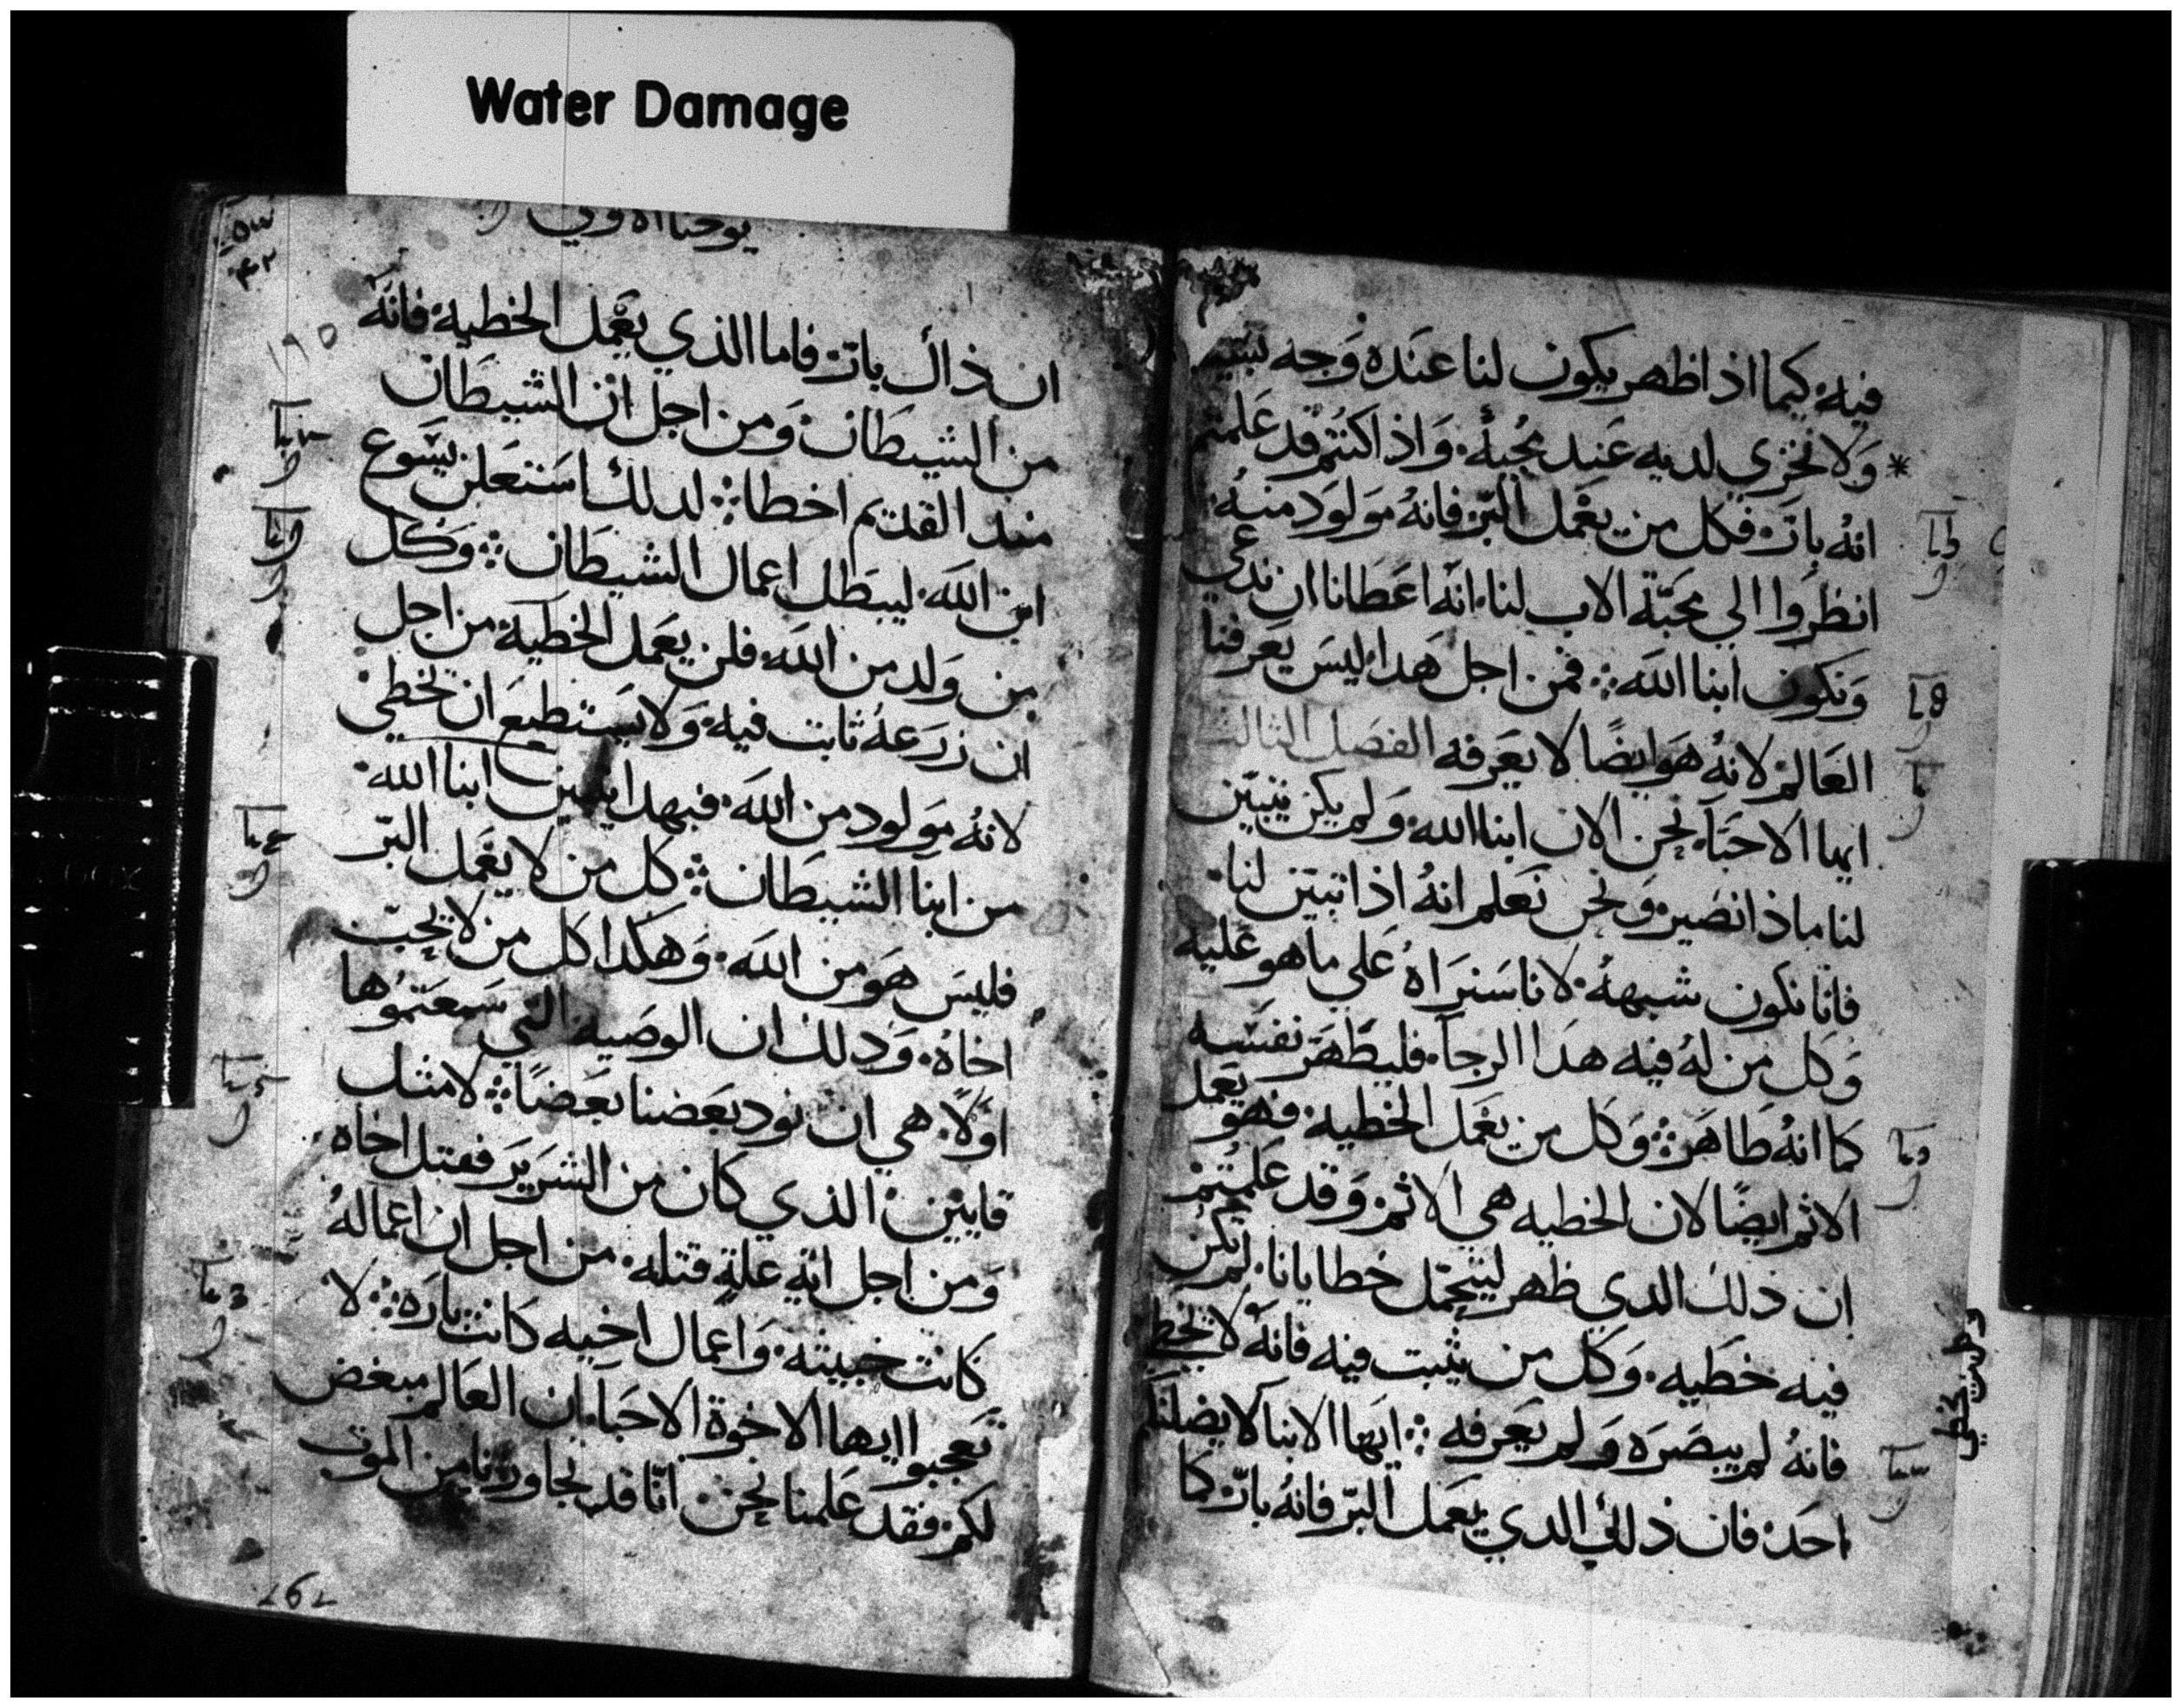 Water Damage
فيه كيما اذا ظهر يكون لنا عنده وجه بسيط
ولا نخزى لديه عند مجيه. واذا كنتم قد علمتم
انه بار فكل من يعمل البر فانه مولود منه.
انظروا الي محبة الاب لنا. انه اعطانا ان ندعي
ونكون ابنا الله فمن اجل هدا ليس يعرفنا
العالم لانه هو ايضا لا يعرفه الفصل الثالث
ايها الاحبا. نحن الان ابنا الله. ولم يكن يتبين
لنا ماذا نصير. ونحن نعلم انه اذا تبين لنا.
فانا نكون شبهه. لانا سنراه علي ما هو عليه
وكل من له فيه هدا الرجا. فليطهر نفسه
كما انه طاهر وكل من يعمل الخطيه. فهو يعمل
الاثم ايضا لان الخطيه هي الاثم وقد علمتم
ان ذلك الدي ظهر ليتحمل خطايانا. لم تكن
فيه خطيه. وكل من يثبت فيه فانه لا يخط
فانه لم يبصره ولم يعرفه ايها الابنا لا يضلنكم
احد. فان ذلك الدي يعمل البر فانه بار كما
يوحنا الاولي
ان ذاك بار. فاما الذي يعمل الخطيه. فانه
من الشيطان. ومن اجل ان الشيطان
مند القديم اخطا لدلك استعلن يسوع
ابن الله. ليبطل اعمال الشيطان وكل
من ولد من الله. فلن يعمل الخطية. من اجل
ان زرعه ثابت فيه. ولا يستطيع ان يخطي
لانه مولود من الله. فبهدا يتبين ابنا الله.
من ابنا الشيطان كل من لا يعمل البر
فليس هو من الله. وهكدا كل من لا يحب
اخاه. ودلك ان الوصيه التي سمعتموها
اولا. هي ان نود بعضنا بعضا لا مثل
قايين الذي كان من الشرير فقتل اخاه
ومن اجل ايه علة قتله. من اجل ان اعماله
كانت خبيثه. واعمال اخيه كانت باره لا
تعجبوا ايها الاخوة الاحبا. ان العالم مبغض
لكم. فقد علمنا نحن انا قد تجاوزنا من الموت